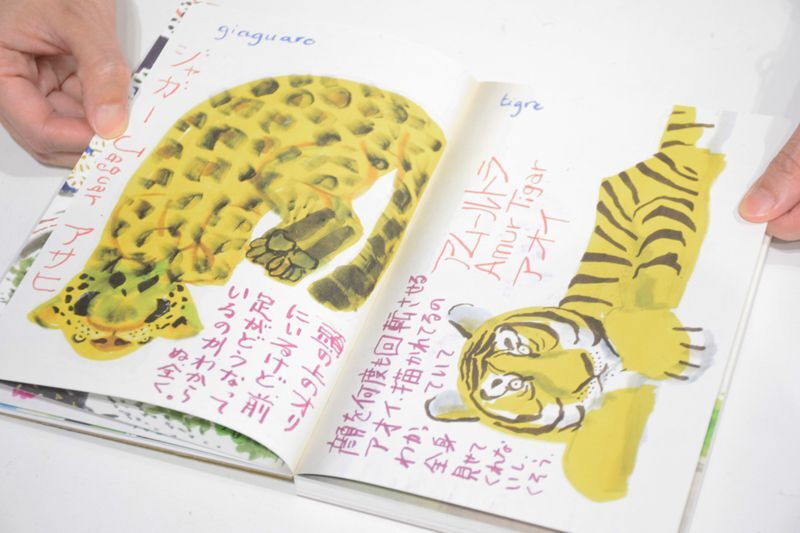 giaguaro
ジャガー Jaguar アサヒ
頭の上のオリ
にいるけど前
足がどうなって
いるのかわから
ぬ全く。
tigre
アムールトラ
Amur Tigar
アオイ
顔を何度も回転させる
アオイ。描かれてるの
わかっていて
全身
見せて
くれな
いし
くそう。